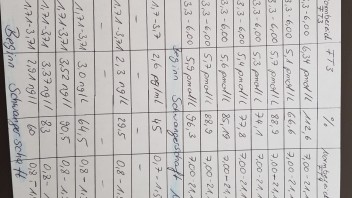 FT3 % Normbereich
3.3 - 6.00 6,34 pmol/l 112,6 7.00-21
3.3 - 6.00 5,1 pmol/l 66,6 7.00-21
3.3 - 6.00 5,7 pmol/l 88,9 7.00-21
3.3 - 6.00 5,3 pmol/l 74,1 7.00-21
3.3 - 6.00 5,4 pmol/l 77,8 7.00-21
3.3 - 6.00 5,6 pmol/l 85,19 7.00-21
3.3 - 6.00 5,7 pmol/l 88,9 7.00-21
3.3 - 6.00 5,9 pmol/l 96,3 7.00-21
Beginn Schwangerschaft
1.71 - 3.7 2,6 pg/ml 45 0,7 - 1.5
- - -
1.71 - 3.71 2,3 ng/l 29,5 0,8 - 1.
- - -
1.71 - 3.71 3,0 ng/l 64,5 0,8 - 1.
1.71 - 3.71 90,5 0,8 - 1.
1.71 - 3.71 3,37 ng/l 83 0,8 - 1.
1.71 - 3.71 2,91 ng/l 60 0,8 - 1.
Beginn Schwangerschaft